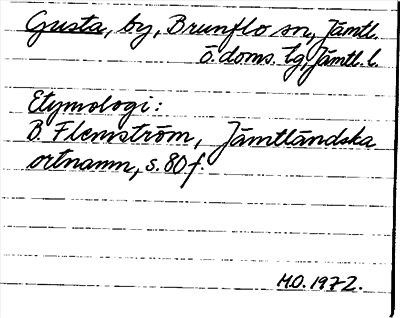 Gusta, by, Brunflo sn, Jämtl.
ö. doms. tg, Jämtl. l.
Etymologi:
B. Flemström, Jämtländska
ortnamn, s. 80 f.
M.O. 1972.